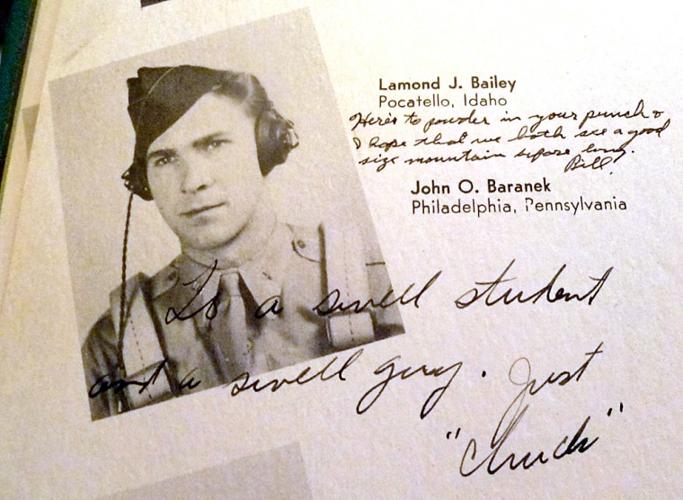 Lamond J. Bailey
Pocatello, Idaho
Here's to powder in your punch &
I hope that we both see a good
size mountain before long.
Bill!
John O. Baranek
Philadelphia, Pennsylvania
To a swell student
and a swell guy. Just
"Chuck"